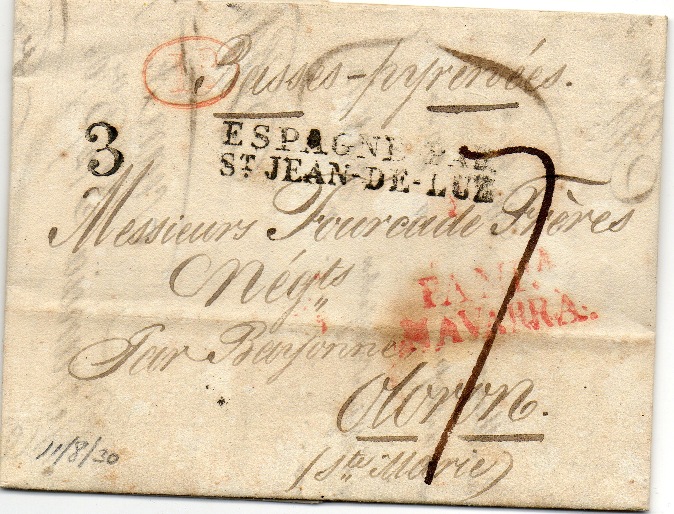 Basses-pyrénées.
3
ESPAGNE PAR
ST JEAN-DE-LUZ
7
Messieurs Fourcade Frères
Négts
PAMPA
NAVARRA.
Par Bayonne
Oloron.
(Ste Marie)
11/8/30